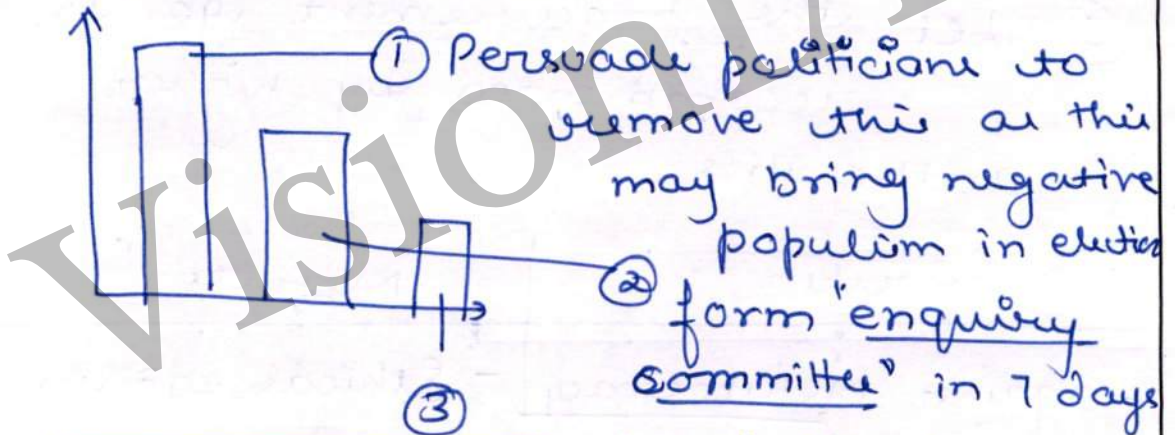 ① Persuade politicians to
remove this as this
may bring negative
populism in election
② form "enquiry
committee" in 7 days
③
Vision